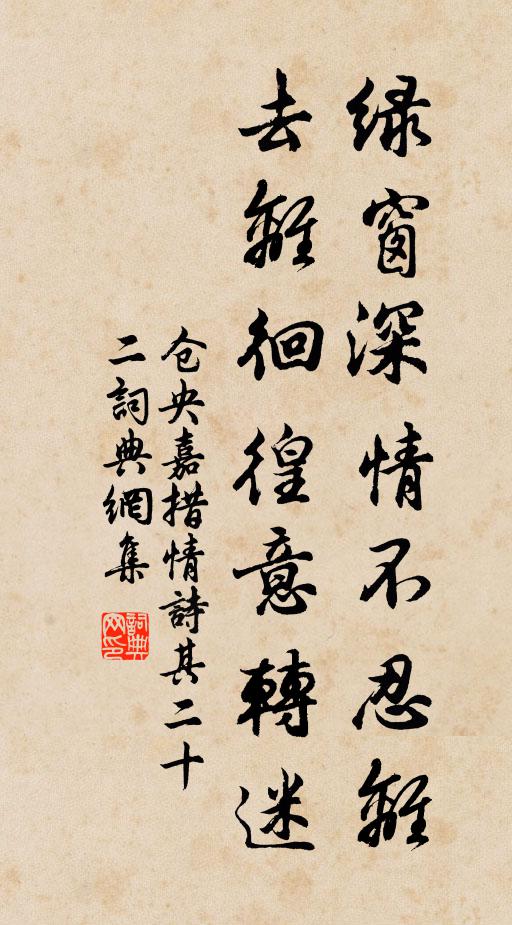 绿窗深情不忍離
去離徊徨意轉迷
仓央嘉措情詩其二十
二詞典網集
詞典
网印